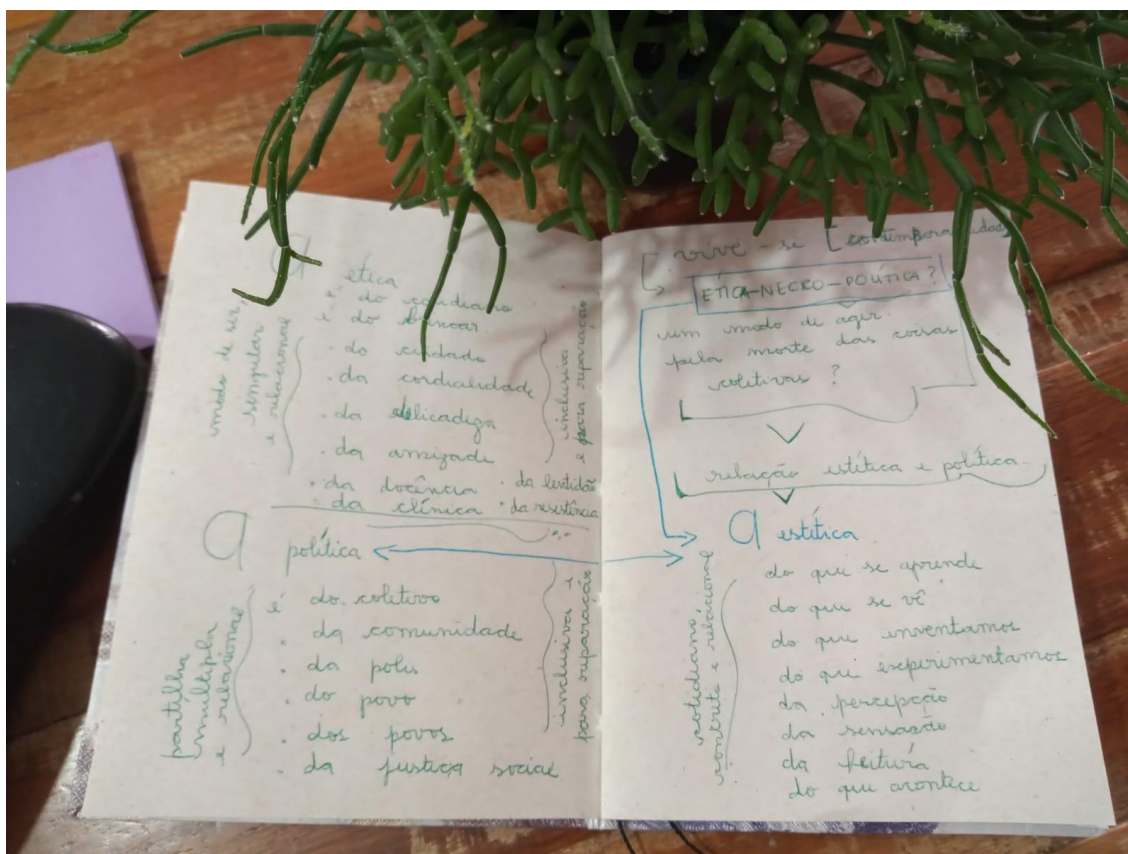 A ética
é do cotidiano
é do buscar
· do cuidado
· da cordialidade
· da delicadeza
· da amizade
· da docência · da lentidão
· da clínica · da resistência
...
modo de ser
singular
e relacional
inclusiva
e para reparação
A política
é do coletivo
· da comunidade
· da polis
· do povo
· dos povos
· da justiça social
partilha
multipla
e relacional
inclusiva e
para reparação
vive-se [contemporaneidade]
ÉTICA-NECRO-POLÍTICA?
um modo de agir
pela morte das coisas
coletivas?
relação estética e política
A estética
do que se aprende
do que se vê
do que inventamos
do que experimentamos
da percepção
da sensação
da feitura
do que acontece
cotidiano
concreta e relacional